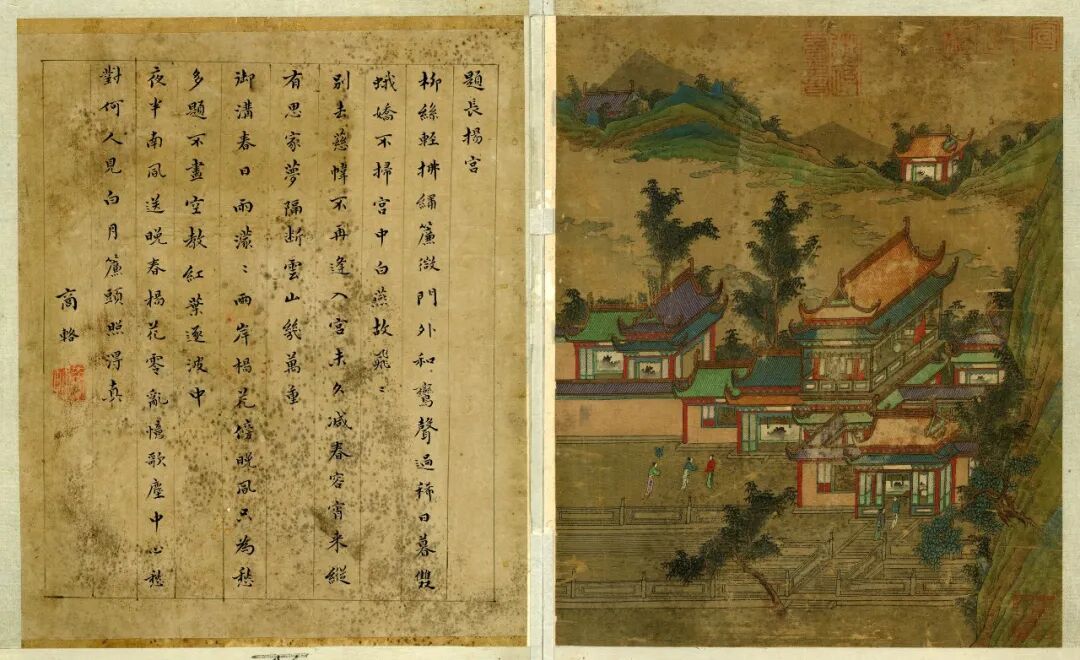 題長揚宮
柳絲輕拂繡簾微門外和鸞聲過稀日暮雙
蛾嬌不掃宮中白燕故飛〻
別去慈幃不再逢入宮未久減春容宵來縱
有思家夢隔斷雲山幾萬重
御溝春日雨濛〻兩岸楊花傍晚風只為愁
多題不盡空教紅葉逐波中
夜半南風送晚春楊花零亂憶歌塵中心愁
對何人見白月簾頭照得真
商輅